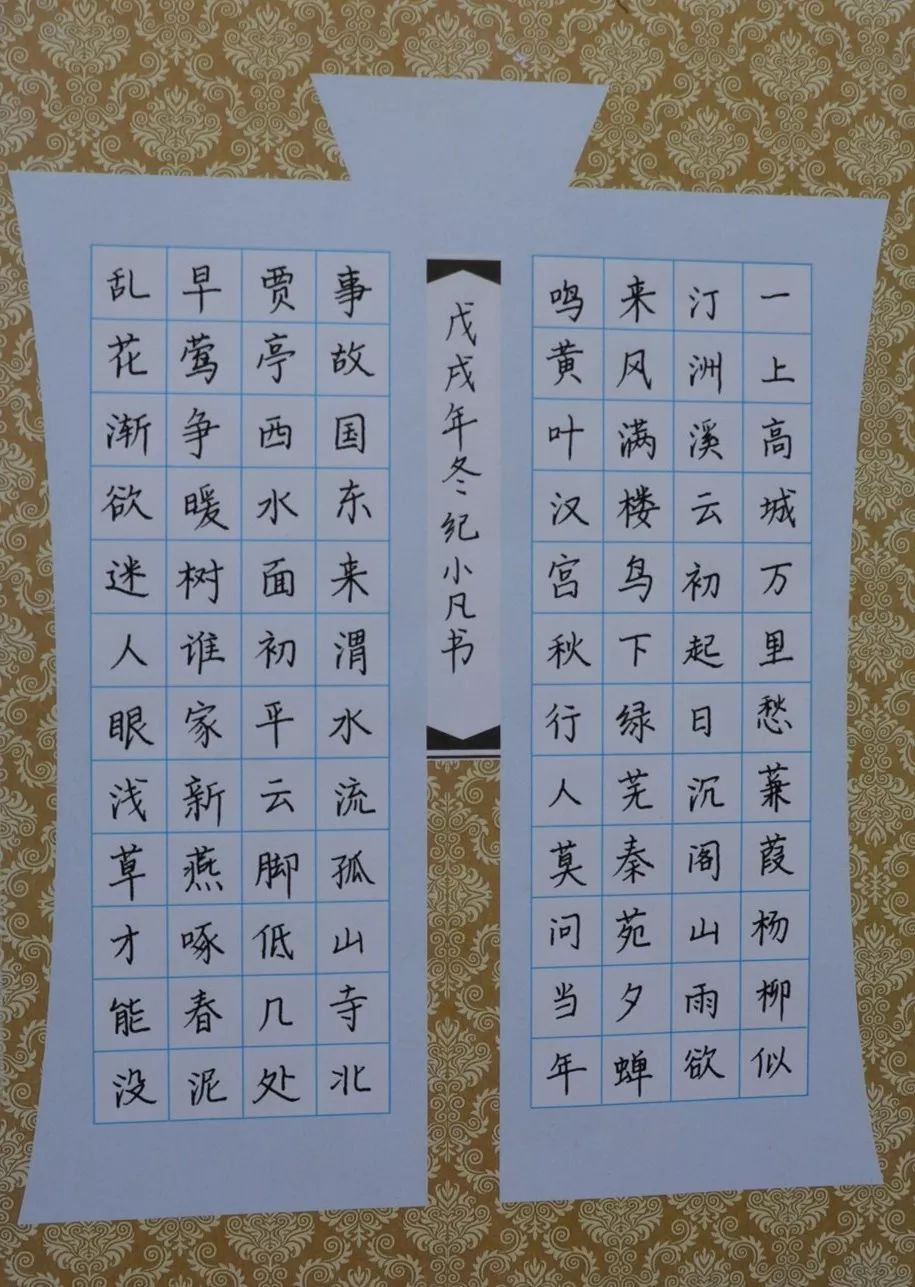 一上高城万里愁蒹葭杨柳似
汀洲溪云初起日沉阁山雨欲
来风满楼鸟下绿芜秦苑夕蝉
鸣黄叶汉宫秋行人莫问当年
事故国东来渭水流孤山寺北
贾亭西水面初平云脚低几处
早莺争暖树谁家新燕啄春泥
乱花渐欲迷人眼浅草才能没
戊戌年冬纪小凡书